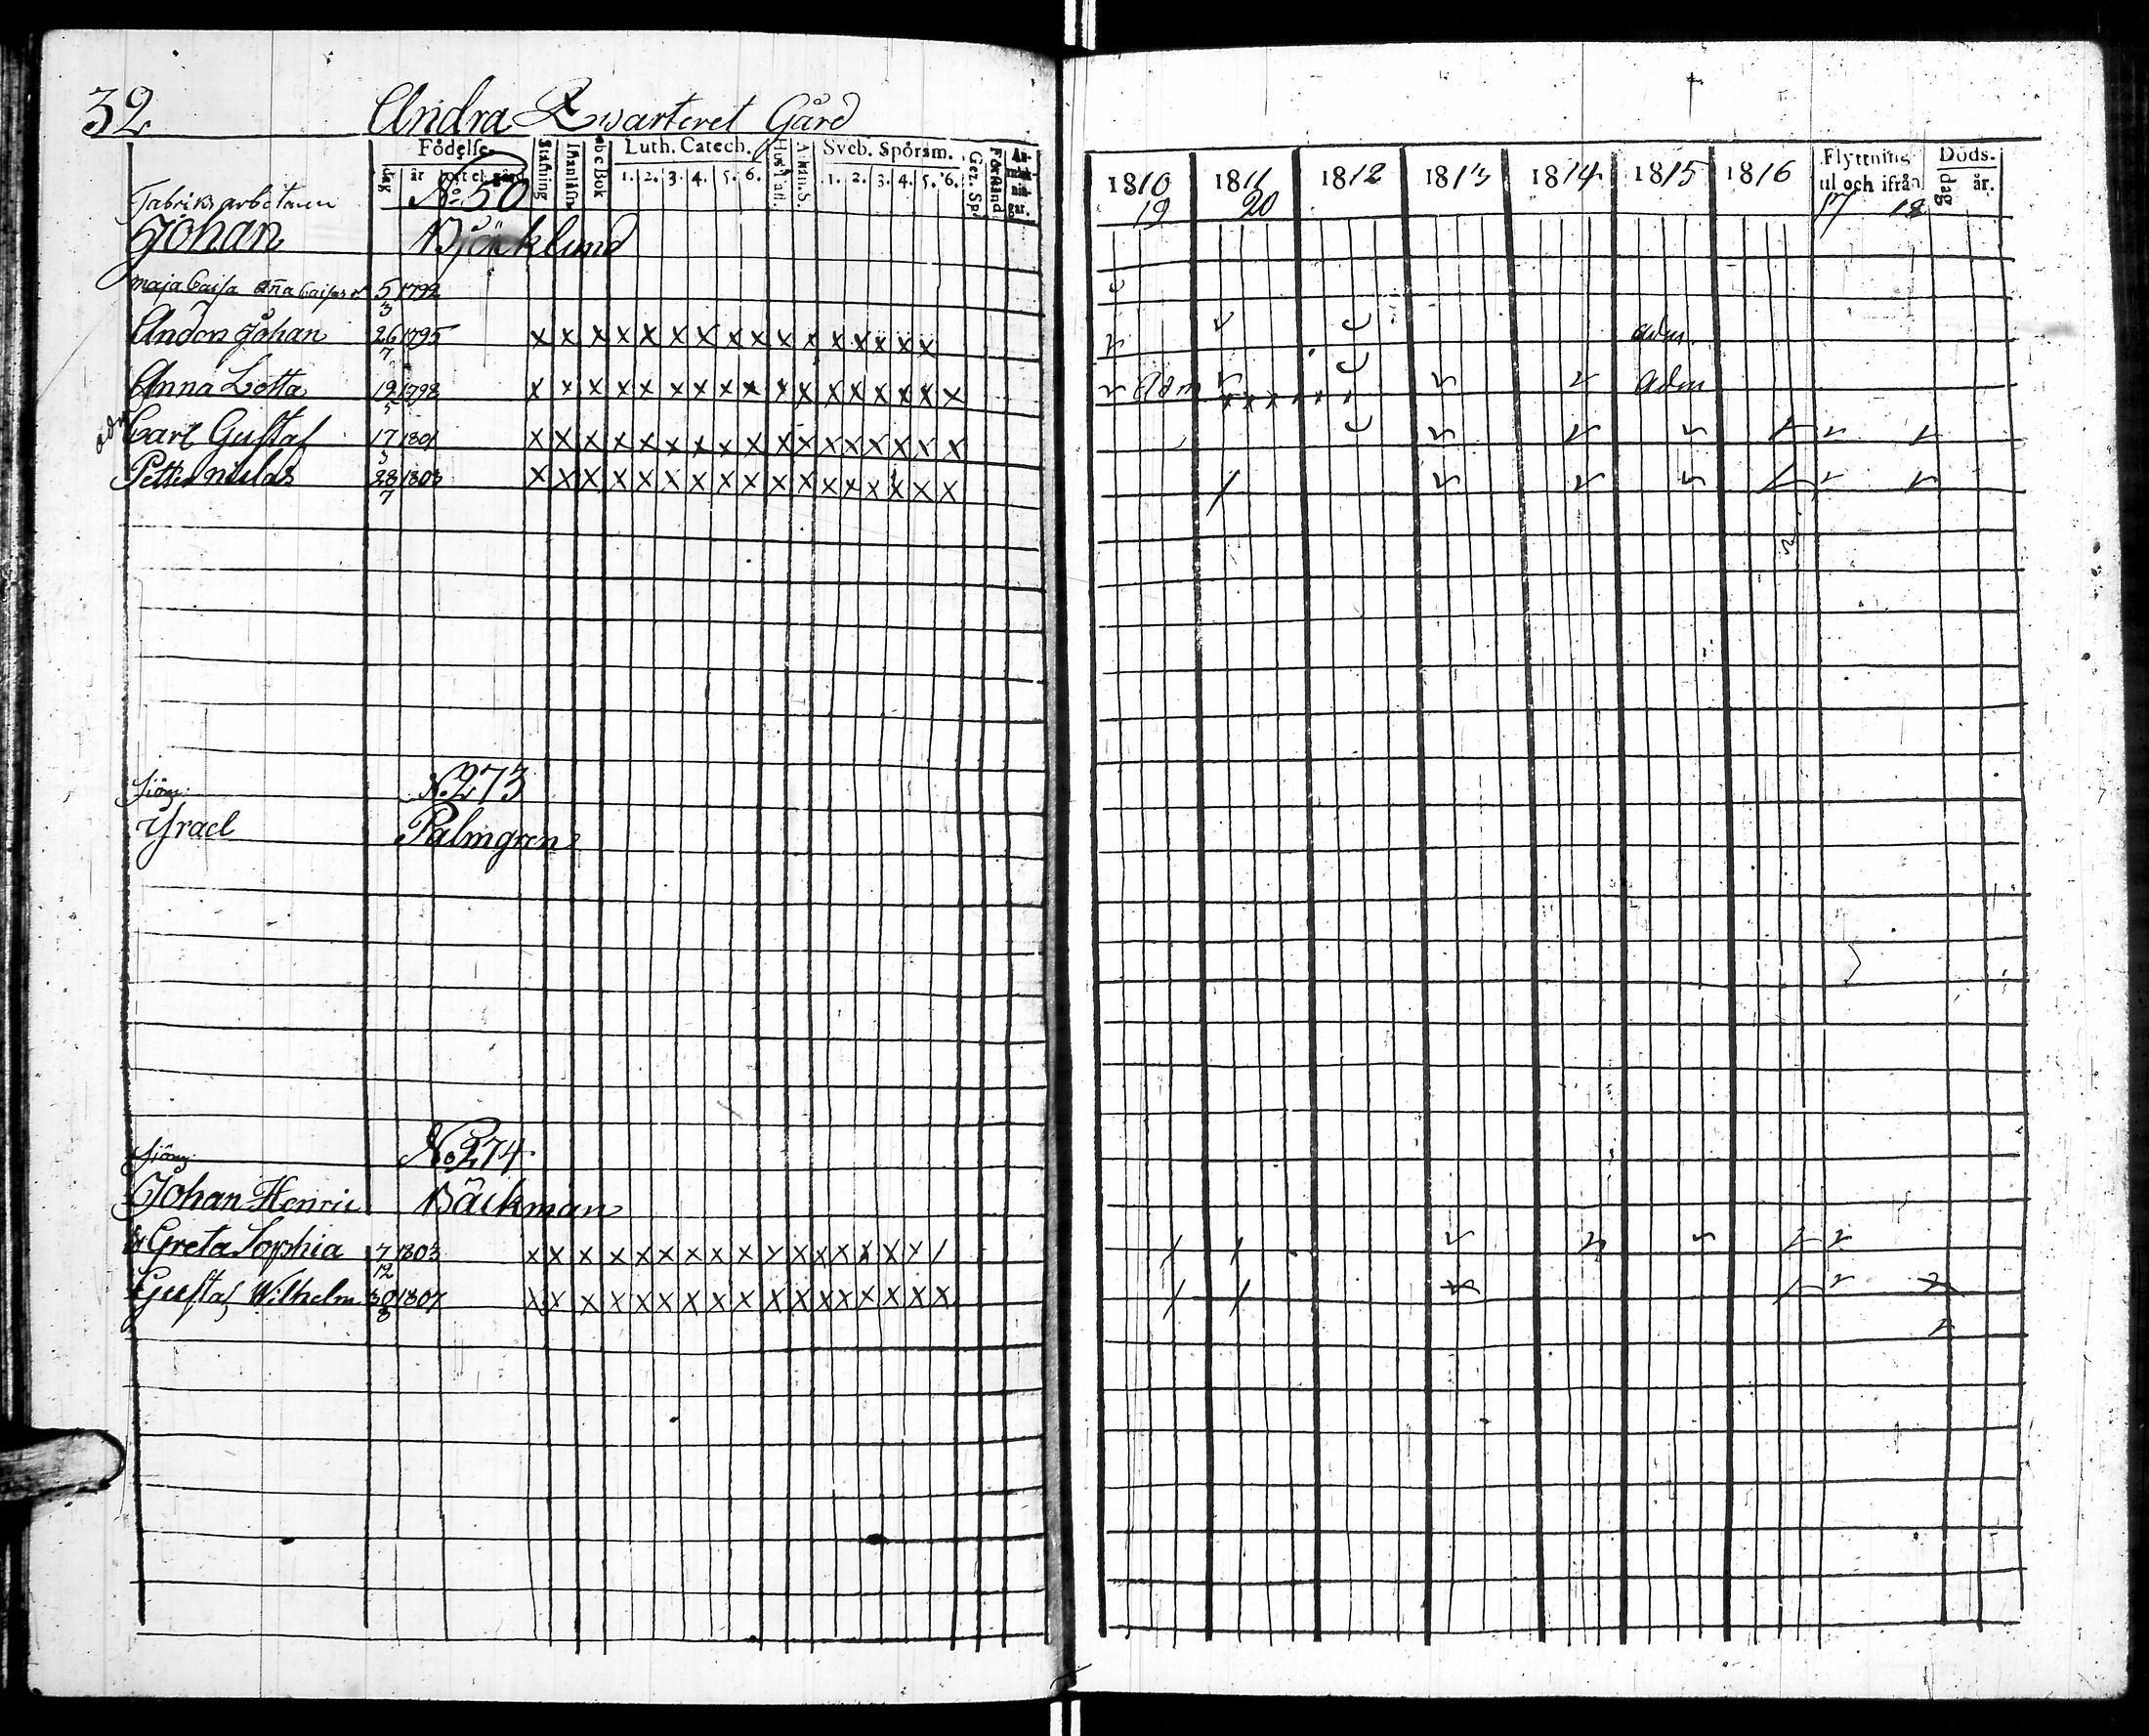 32 Andra Qwarteret Gård
Födelse- Stafning Abc Bok Luth. Catech. Sveb. Spörsm. Gez. Sp. Förstånd An-märk-nin-gar.
dag år ort el. gård 1. 2. 3. 4. 5. 6. 1. 2. 3. 4. 5. 6.
1810 1811 1812 1813 1814 1815 1816 Flyttning til och ifrån Döds-
19 20 17 18 dag år.
Fabriks arbetaren No 50
Johan Björklund
Maja Caisa 5/3 1792
Anders Johan 26/7 1795 x x x x x x x x x x x x x x x x adm
Anna Lotta 1798 x x x x x x x x x x x x x x x x x Adm x x x x x x Adm
adm Carl Gustaf 17/3 1801 x x x x x x x x x x x x x x x x x
Petter 28/7 1803 x x x x x x x x x x x x x x x x x
Sjöm: N. 273
Israel Palmgren
Sjöm: No 274
Johan Henric Bäckman
Greta Sophia 7/12 1803 x x x x x x x x x x x x x x x x /
Gustaf Wilhelm 30/8 1807 x x x x x x x x x x x x x x x x x